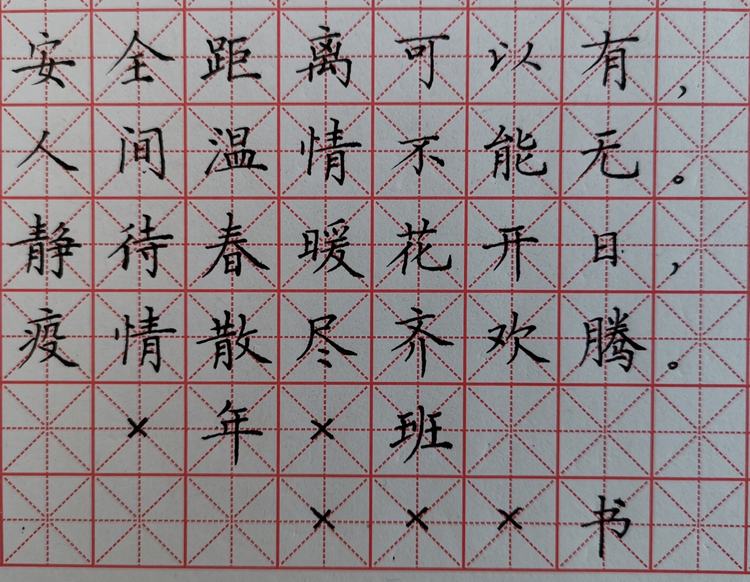 安全距离可以有，
人间温情不能无。
静待春暖花开日，
疫情散尽齐欢腾。
×年×班
×××书